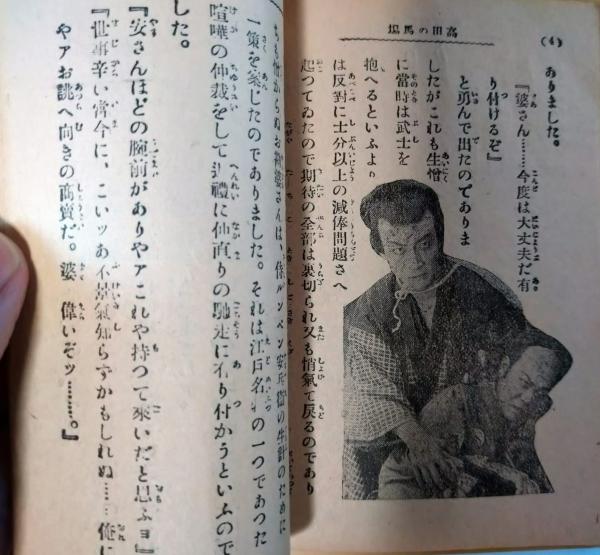 (4)
高田の馬場
ありました。
『婆さん……今度は大丈夫だ有
り付けるぞ』
と勇んで出たのでありま
したがこれも生憎
に當時は武士を
抱へるといふより
は反對に士分以上の減俸問題さへ
起つてゐたので期待の全部は裏切られ又も悄氣て戻るのであり
一策を案じたのでありました。それは江戸名の一つであつた
喧嘩の仲裁をして返禮に仲直りの馳走に有り付かうといふので
した。
『安さんほどの腕前がありやアこれや持つて來いだと思ふョ』
『世事辛い宵今に、こいつァ不景氣知らずかもしれぬ……俺に
やアお誂へ向きの商賣だ。婆 偉いぞッ………。』